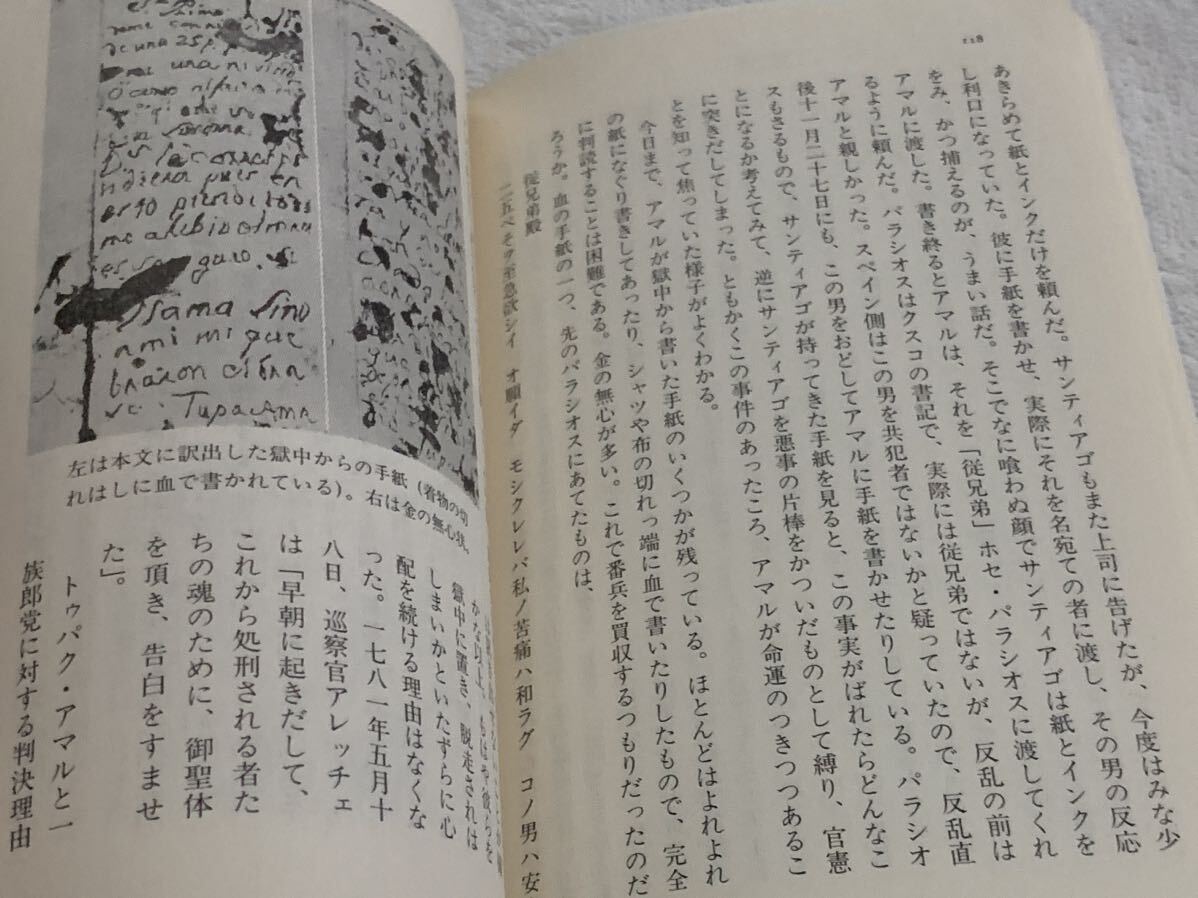 118
あきらめて紙とインクだけを頼んだ。サンティアゴもまた上司に告げたが、今度はみな少
し利口になっていた。彼に手紙を書かせ、実際にそれを名宛ての者に渡し、その男の反応
をみ、かつ捕えるのが、うまい話だ。そこでなに喰わぬ顔でサンティアゴは紙とインクを
アマルに渡した。書き終るとアマルは、それを「従兄弟」ホセ・パラシオスに渡してくれ
るように頼んだ。パラシオスはクスコの書記で、実際には従兄弟ではないが、反乱の前は
アマルと親しかった。スペイン側はこの男を共犯者ではないかと疑っていたので、反乱直
後十一月二十七日にも、この男をおどしてアマルに手紙を書かせたりしている。パラシオ
スもさるもので、サンティアゴが持ってきた手紙を見ると、この事実がばれたらどんなこ
とになるか考えてみて、逆にサンティアゴを悪事の片棒をかついだものとして縛り、官憲
に突きだしてしまった。ともかくこの事件のあったころ、アマルが命運のつきつつあるこ
とを知って焦っていた様子がよくわかる。
今日まで、アマルが獄中から書いた手紙のいくつかが残っている。ほとんどはよれよれ
の紙になぐり書きしてあったり、シャツや布の切れっ端に血で書いたりしたもので、完全
に判読することは困難である。金の無心が多い。これで番兵を買収するつもりだったのだ
ろうか。血の手紙の一つ、先のパラシオスにあてたものは、
従兄弟殿
二五ペソヲ至急欲シイ オ願イダ モシクレレバ私ノ苦痛ハ和ラグ コノ男ハ安
左は本文に訳出した獄中からの手紙（着物の切
れはしに血で書かれている）。右は金の無心状。
獄中に置き、脱走されは
しまいかといたずらに心
配を続ける理由はなくな
った。一七八一年五月十
八日、巡察官アレッチェ
は「早朝に起きだして、
これから処刑される者た
ちの魂のために、御聖体
を頂き、告白をすませ
た」。
トゥパク・アマルと一
族郎党に対する判決理由